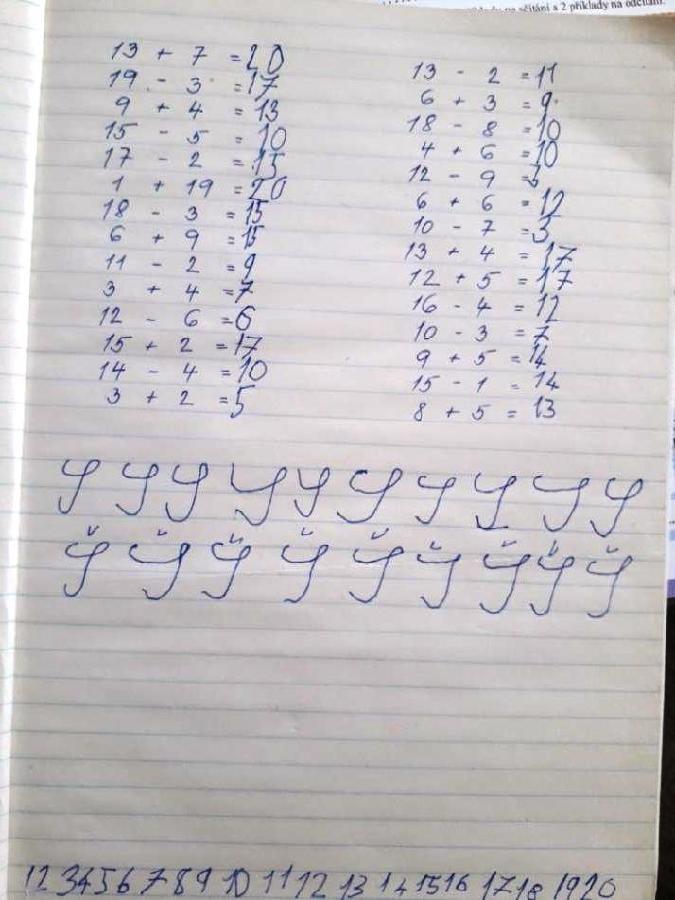 a 2 příklady na odčítání.
13 + 7 = 20
19 - 3 = 17
9 + 4 = 13
15 - 5 = 10
17 - 2 = 15
1 + 19 = 20
18 - 3 = 15
6 + 9 = 15
11 - 2 = 9
3 + 4 = 7
12 - 6 = 6
15 + 2 = 17
14 - 4 = 10
3 + 2 = 5
13 - 2 = 11
6 + 3 = 9
18 - 8 = 10
4 + 6 = 10
12 - 9 = 3
6 + 6 = 12
10 - 7 = 3
13 + 4 = 17
12 + 5 = 17
16 - 4 = 12
10 - 3 = 7
9 + 5 = 14
15 - 1 = 14
8 + 5 = 13
1 2 3 4 5 6 7 8 9 10 11 12 13 14 15 16 17 18 19 20